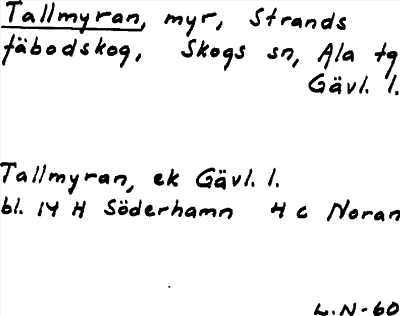 Tallmyran, myr, Strands
fäbodskog, Skogs sn, Ala tg
Gävl. l.
Tallmyran, ek Gävl. l.
bl. 14 H Söderhamn 4 c Noran
L.N-60